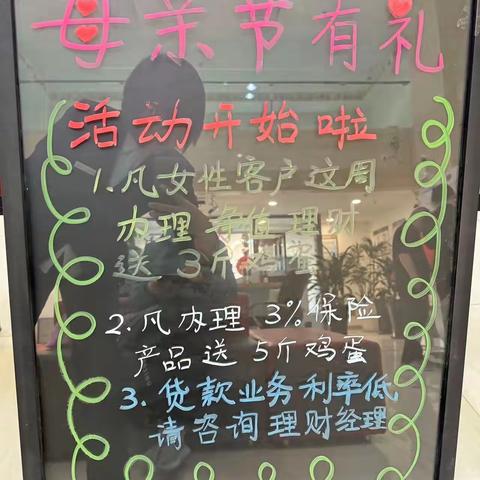 母亲节有礼
活动开始啦
1.凡女性客户这周
办理净值理财
送3斤鸡蛋
2.凡办理3%保险
产品送5斤鸡蛋
3.贷款业务利率低
请咨询理财经理